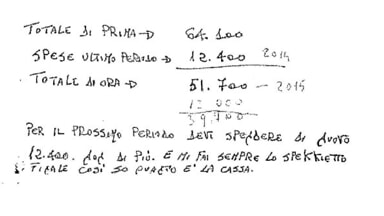 TOTALE DI PRIMA → 64.100
SPESE ULTIMO PERIODO → 12.400 2014
TOTALE DI ORA → 51.700 – 2015
12 000
39,700
PER IL PROSSIMO PERIODO DEVI SPENDERE DI NUOVO
12.400. NON DI PIÙ. E MI FAI SEMPRE LO SPECCHIETTO
FINALE COSÌ SO QUANTO È LA CASSA.